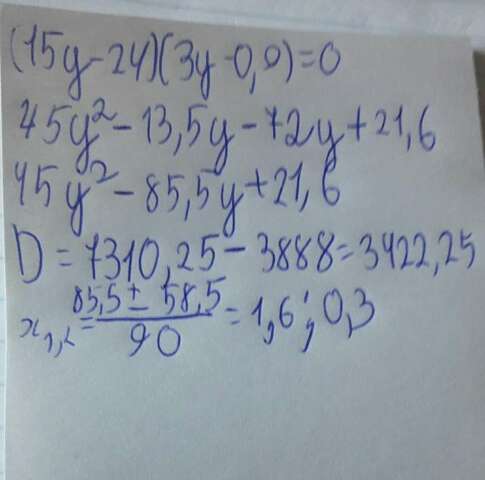 (15y-24)(3y-0,9)=0
45y²-13,5y-72y+21,6
45y²-85,5y+21,6
D=7310,25-3888=3422,25
x₁,₂=(85,5±58,5)/90=1,6;0,3